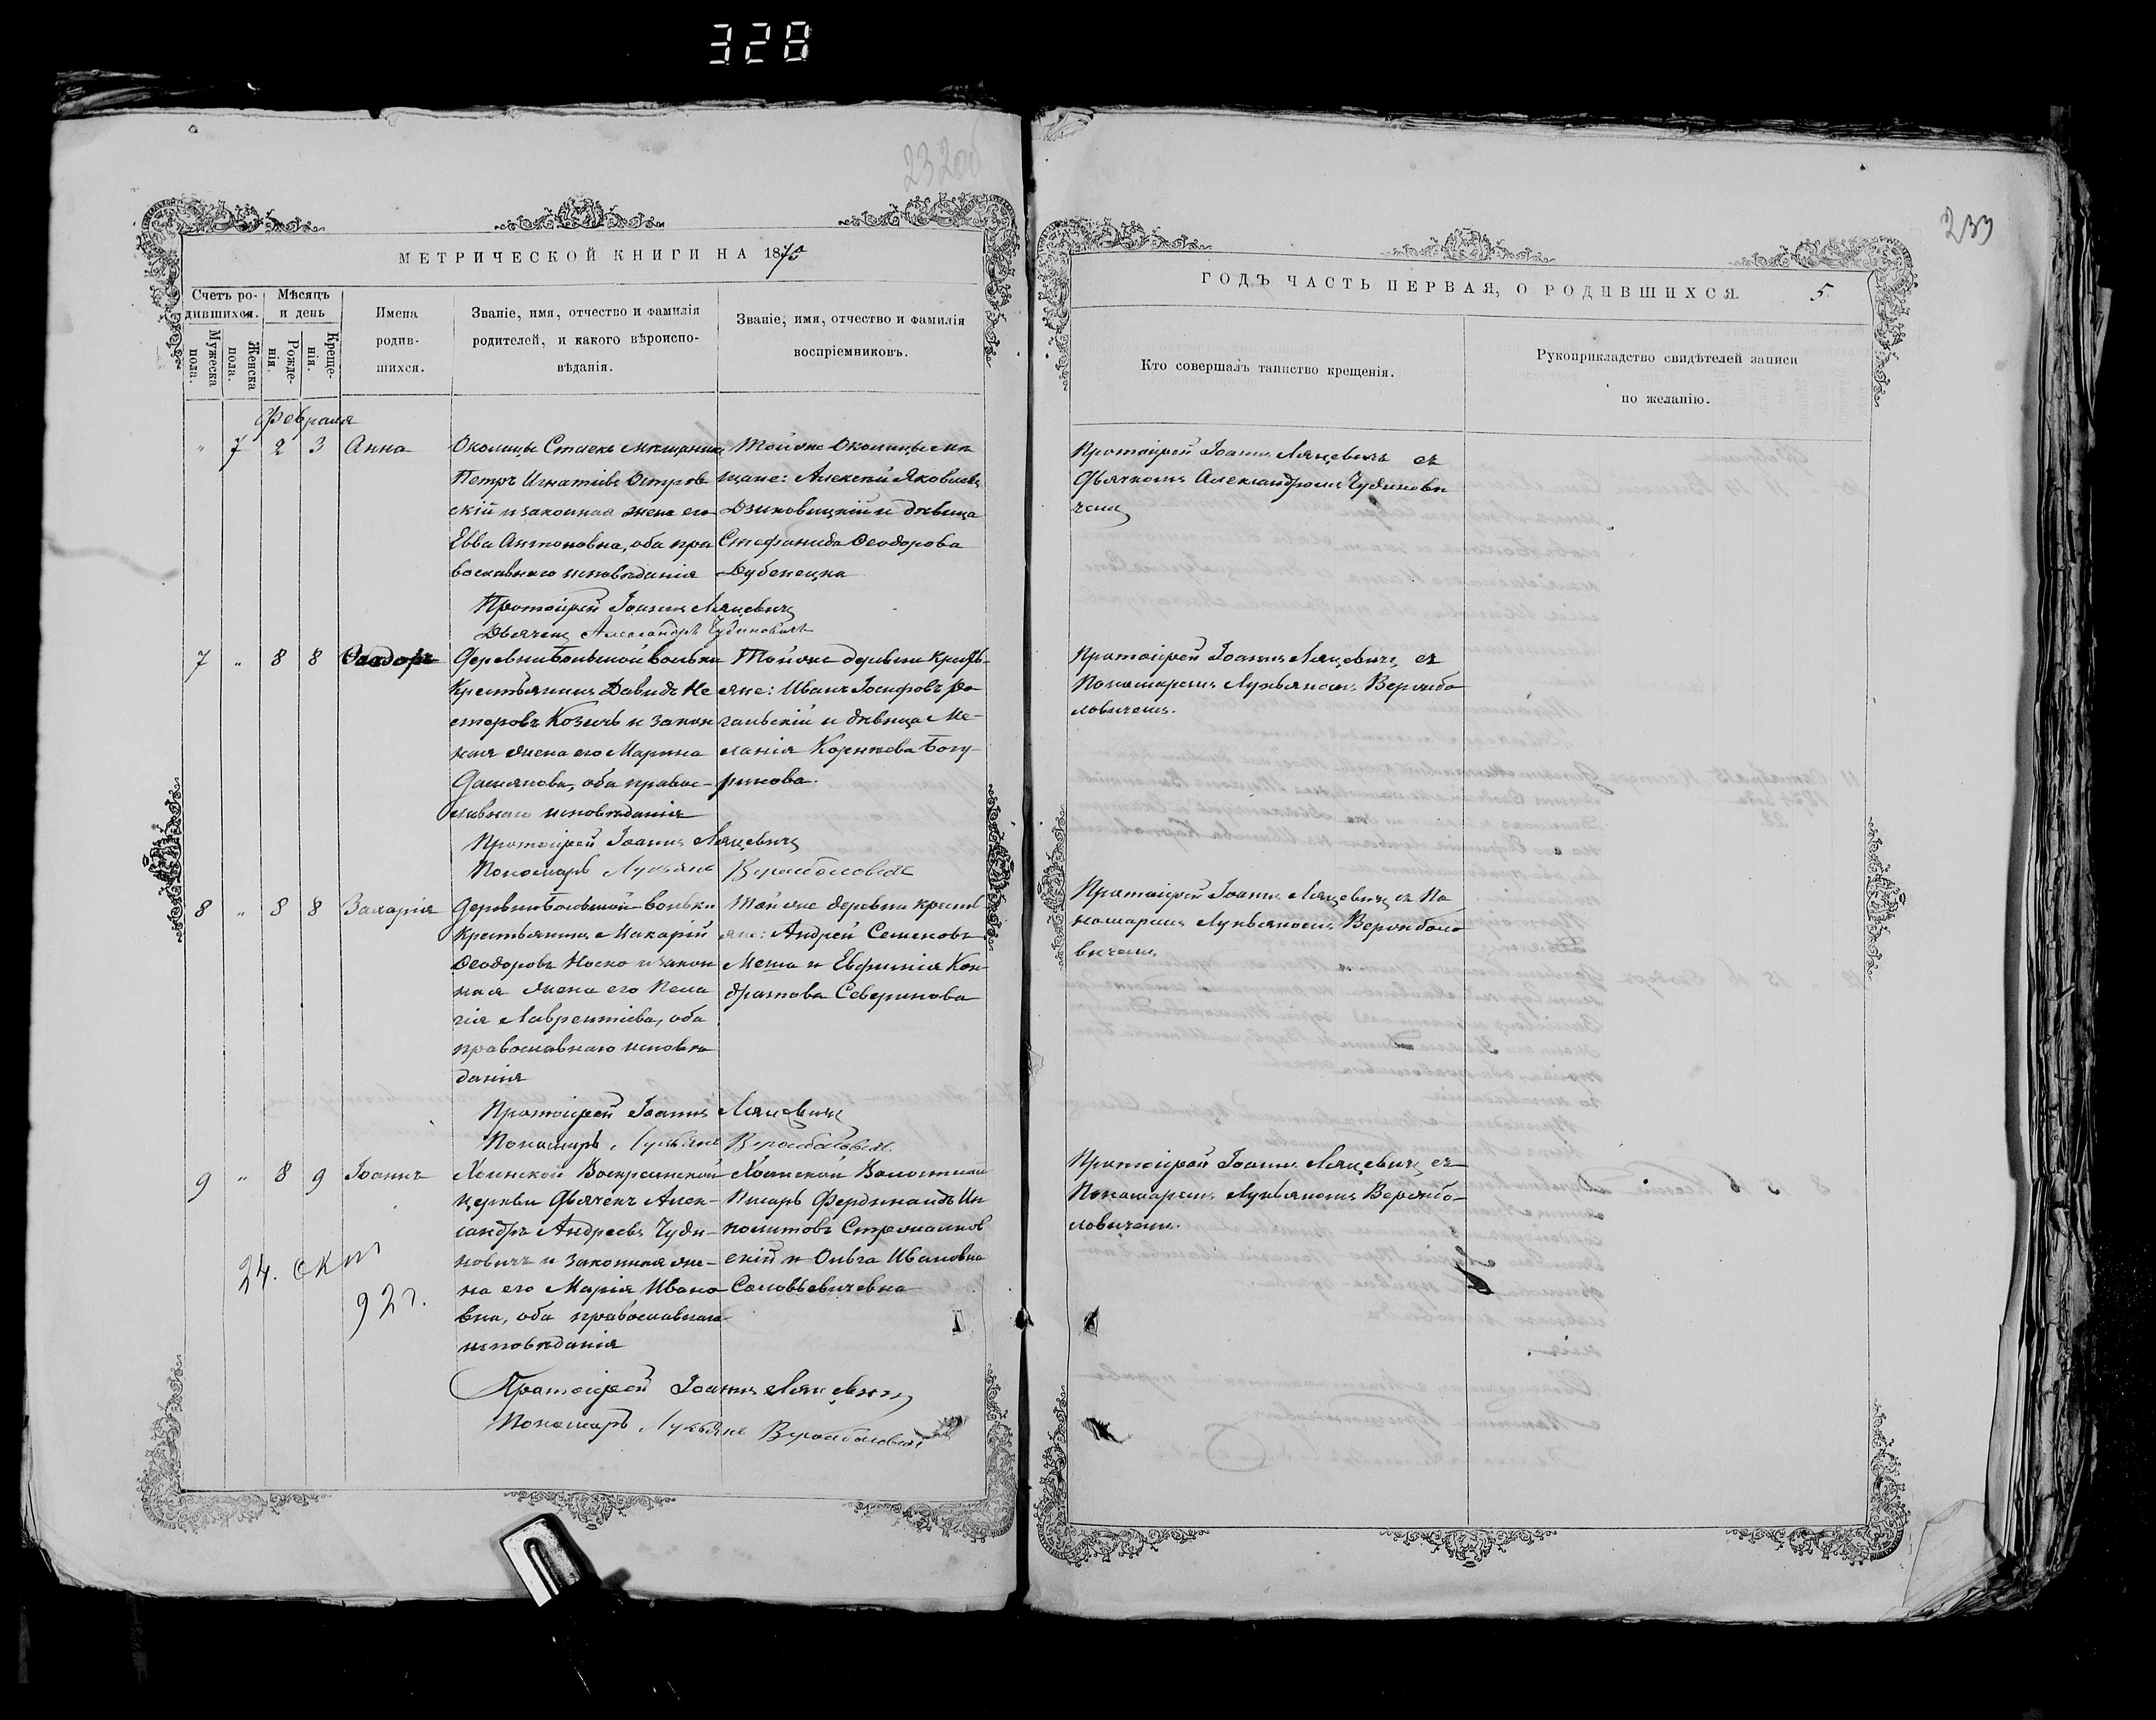 328
232об
МЕТРИЧЕСКОЙ КНИГИ НА 1875
Счетъ ро-
дившихся.
Мѣсяцъ
и день
Мужеска
пола.
Женска
пола.
Рожде-
нія.
Креще-
нія.
Имена
родив-
шихся.
Званіе, имя, отчество и фамилія
родителей, и какого вѣроиспо-
вѣданія.
Званіе, имя, отчество и фамилія
воспріемниковъ.
Февраля
" 7 2 3 Анна
Околицы Стаекъ мѣщанинъ
Петръ Игнатіевъ Остров
скій и законная жена его
Евва Антоновна, оба пра
вославнаго исповѣданія
Тойже Околицы мѣ
щане: Алексѣй Яковлевъ
Дзиковицкій и дѣвица
Стефанида Ѳеодорова
Дубенецка
Протоіерей Іоаннъ Ляцевичъ
Дьячекъ Александръ Чудиновичъ
7 " 8 8 Ѳеодоръ
Деревни Большой вольки
Крестьянинъ Давидъ Не
стеровъ Козичъ и закон
ная жена его Марина
Дамянова, оба правос-
лавнаго исповѣданія
Тойже деревни кресть-
яне: Иванъ Іосифовъ Ро
гальскій и дѣвица Ме-
ланія Корнѣева Богу-
ринова.
Протоіерей Іоаннъ Ляцевичъ
Пономарь Лукьянъ
8 " 8 8 Захарія
Деревни Большой вольки
Крестьянинъ Макарій
Ѳеодоровъ Носко и закон
ная жена его Пела
гія Лаврентіева, оба
православнаго исповѣ
данія
Тойже деревни кресть
яне: Андрей Семеновъ
Меша и Евфимія Кон-
дратова Северинова
Протоіерей Іоаннъ Ляцевичъ
Пономарь Лукьянъ
9 " 8 9 Іоаннъ
Хоинской Воскресенской
церкви Дьячекъ Алек-
сандръ Андреевъ Чуди-
новичъ и законная же-
на его Марія Ивано
вна, оба православнаго
исповѣданія
Хоинской Волостной
Писарь Фердинандъ Ип
политовъ
скій и Ольга Ивановна
Соловьевичевна
24.
92 г.
Протоіерей Іоаннъ Ляцевичъ
Пономарь Лукьянъ
233
ГОДЪ ЧАСТЬ ПЕРВАЯ, О РОДИВШИХСЯ. 5.
Кто совершалъ таинство крещенія.
Рукоприкладство свидѣтелей записи
по желанію.
Протоіерей Іоаннъ Ляцевичъ съ
Дьячкомъ Александромъ Чудинови
чемъ
Протоіерей Іоаннъ Ляцевичъ съ
Пономаремъ Лукьяномъ
ловичемъ.
Протоіерей Іоаннъ Ляцевичъ съ По
номаремъ Лукьяномъ
вичемъ
Протоіерей Іоаннъ Ляцевичъ съ
Пономаремъ Лукьяномъ
ловичемъ.